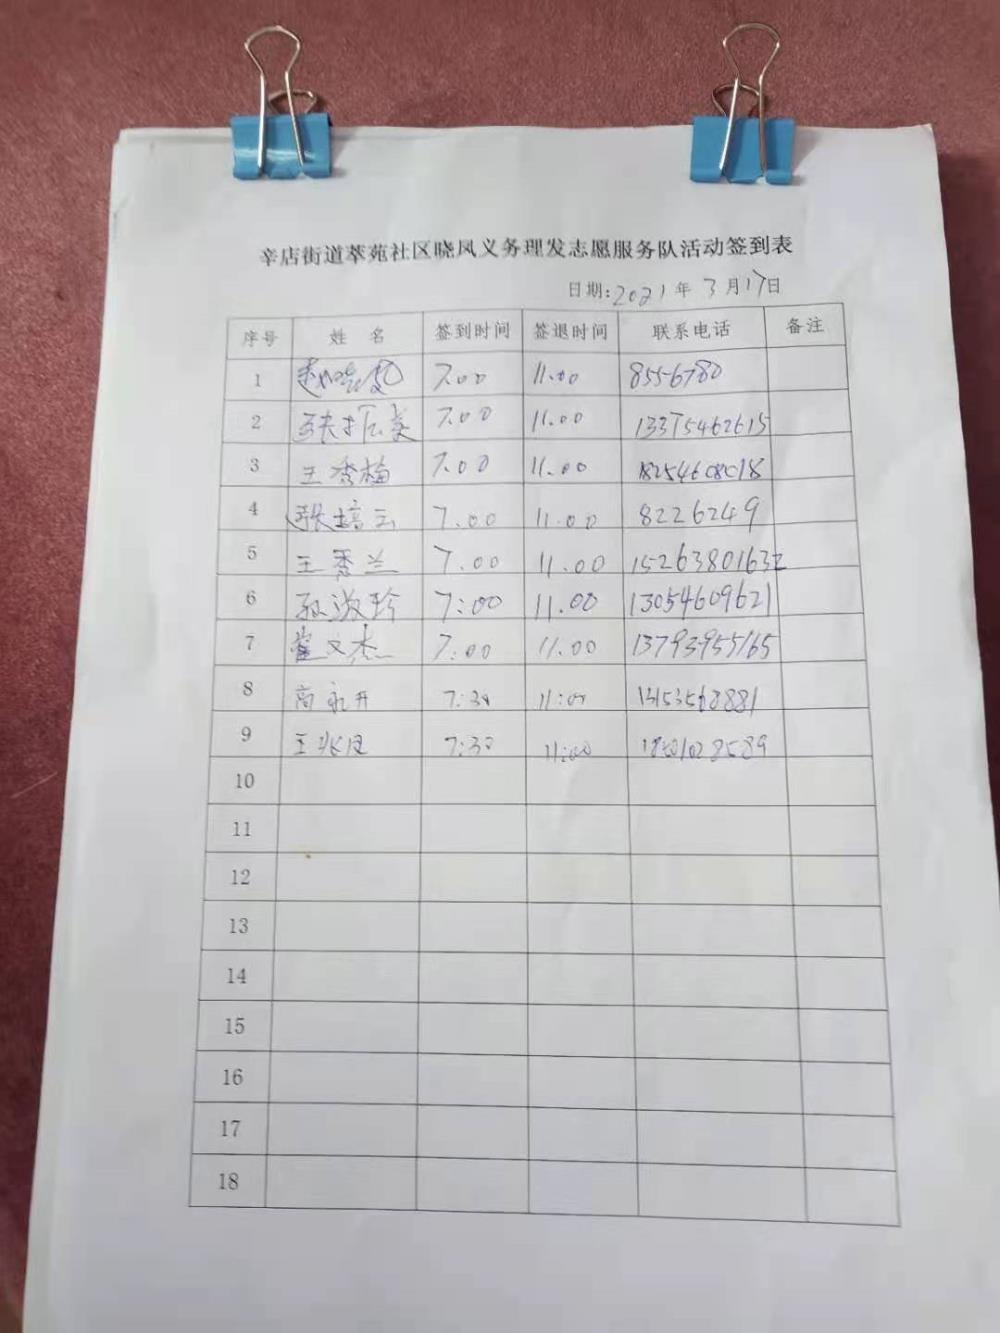 辛店街道萃苑社区晓凤义务理发志愿服务队活动签到表
日期:2021年3月17日
序号 姓名 签到时间 签退时间 联系电话 备注
1 赵晓凤 7.00 11.00 8556780
2 7.00 11.00 13375462615
3 王秀梅 7.00 11.00 18254608018
4 张培云 7.00 11.00 8226249
5 王秀兰 7.00 11.00
6 孙淑珍 7:00 11.00 13054609621
7 崔文杰 7:00 11.00 13793955165
8 高永开 7:30 11:00
9 王兆凤 7:30 11:00
10
11
12
13
14
15
16
17
18